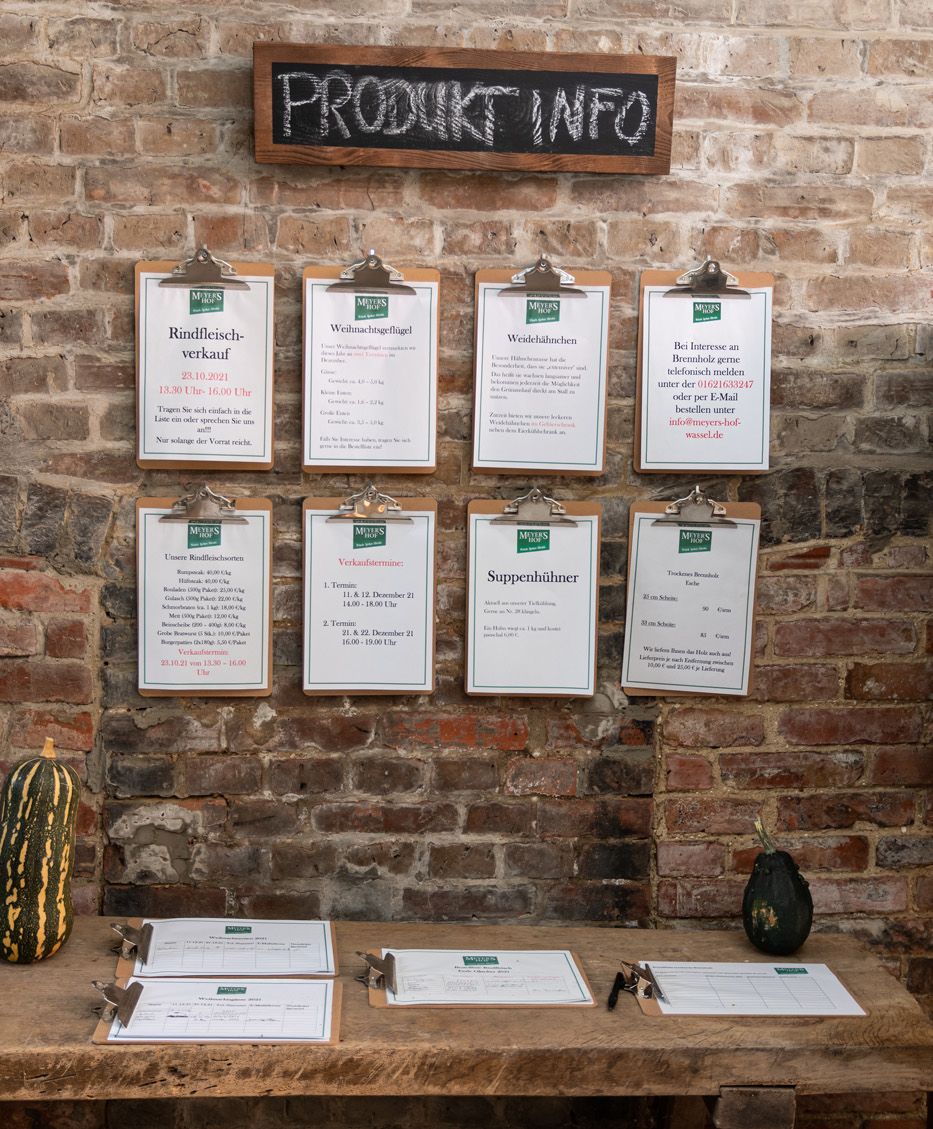 PRODUKT INFO
MEYER'S
HOF
Rindfleisch-
verkauf
23.10.2021
13.30 Uhr- 16.00 Uhr
Tragen Sie sich einfach in die
Liste ein oder sprechen Sie uns
an!!!
Nur solange der Vorrat reicht.
MEYER'S
HOF
Weihnachtsgeflügel
Unser Weihnachtsgeflügel vermarkten wir
dieses Jahr an zwei Terminen im
Dezember.
Gänse:
Gewicht ca. 4,0 – 5,0 kg
Kleine Enten:
Gewicht ca. 1,6 – 2,2 kg
Große Enten:
Gewicht ca. 2,5 – 3,0 kg
Falls Sie Interesse haben, tragen Sie sich
gerne in die Bestellliste ein!
MEYER'S
HOF
Weidehähnchen
Unsere Hähnchenrasse hat die
Besonderheit, dass sie „extensiver" sind.
Das heißt sie wachsen langsamer und
bekommen jederzeit die Möglichkeit
den Grünauslauf direkt am Stall zu
nutzen.
Zurzeit bieten wir unsere leckeren
Weidehähnchen im Gefrierschrank
neben dem Eierkühlschrank an.
MEYER'S
HOF
Bei Interesse an
Brennholz gerne
telefonisch melden
unter der 01621633247
oder per E-Mail
bestellen unter
info@meyers-hof-
wassel.de
MEYER'S
HOF
Unsere Rindfleischsorten
Rumpsteak: 40,00 €/kg
Hüftsteak: 40,00 €/kg
Rouladen (500g Paket): 25,00 €/kg
Gulasch (500g Paket): 22,00 €/kg
Schmorbraten (ca. 1 kg): 18,00 €/kg
Mett (500g Paket): 12,00 €/kg
Beinscheibe (200 – 400g): 8,00 €/kg
Grobe Bratwurst (5 Stk.): 10,00 €/Paket
Burgerpatties (2x180g): 5,50 €/Paket
Verkaufstermin:
23.10.21 von 13.30 – 16.00
Uhr
MEYER'S
HOF
Verkaufstermine:
1. Termin:
11. & 12. Dezember 21
14.00 - 18.00 Uhr
2. Termin:
21. & 22. Dezember 21
16.00 - 19.00 Uhr
MEYER'S
HOF
Suppenhühner
Aktuell aus unserer Tiefkühlung.
Gerne an Nr. 28 klingeln.
Ein Huhn wiegt ca. 1 kg und kostet
pauschal 6,00 €.
MEYER'S
HOF
Trockenes Brennholz
Esche
25 cm Scheite:
90 €/srm
33 cm Scheite:
85 €/srm
Wir liefern Ihnen das Holz auch auf!
Lieferpreis je nach Entfernung zwischen
10,00 € und 25,00 € je Lieferung
MEYER'S
Weihnachtsenten 2021
MEYER'S
HOF
Weihnachtsgänse 2021
MEYER'S
Bestellliste Rindfleisch
Ende Oktober 2021
MEYER'S